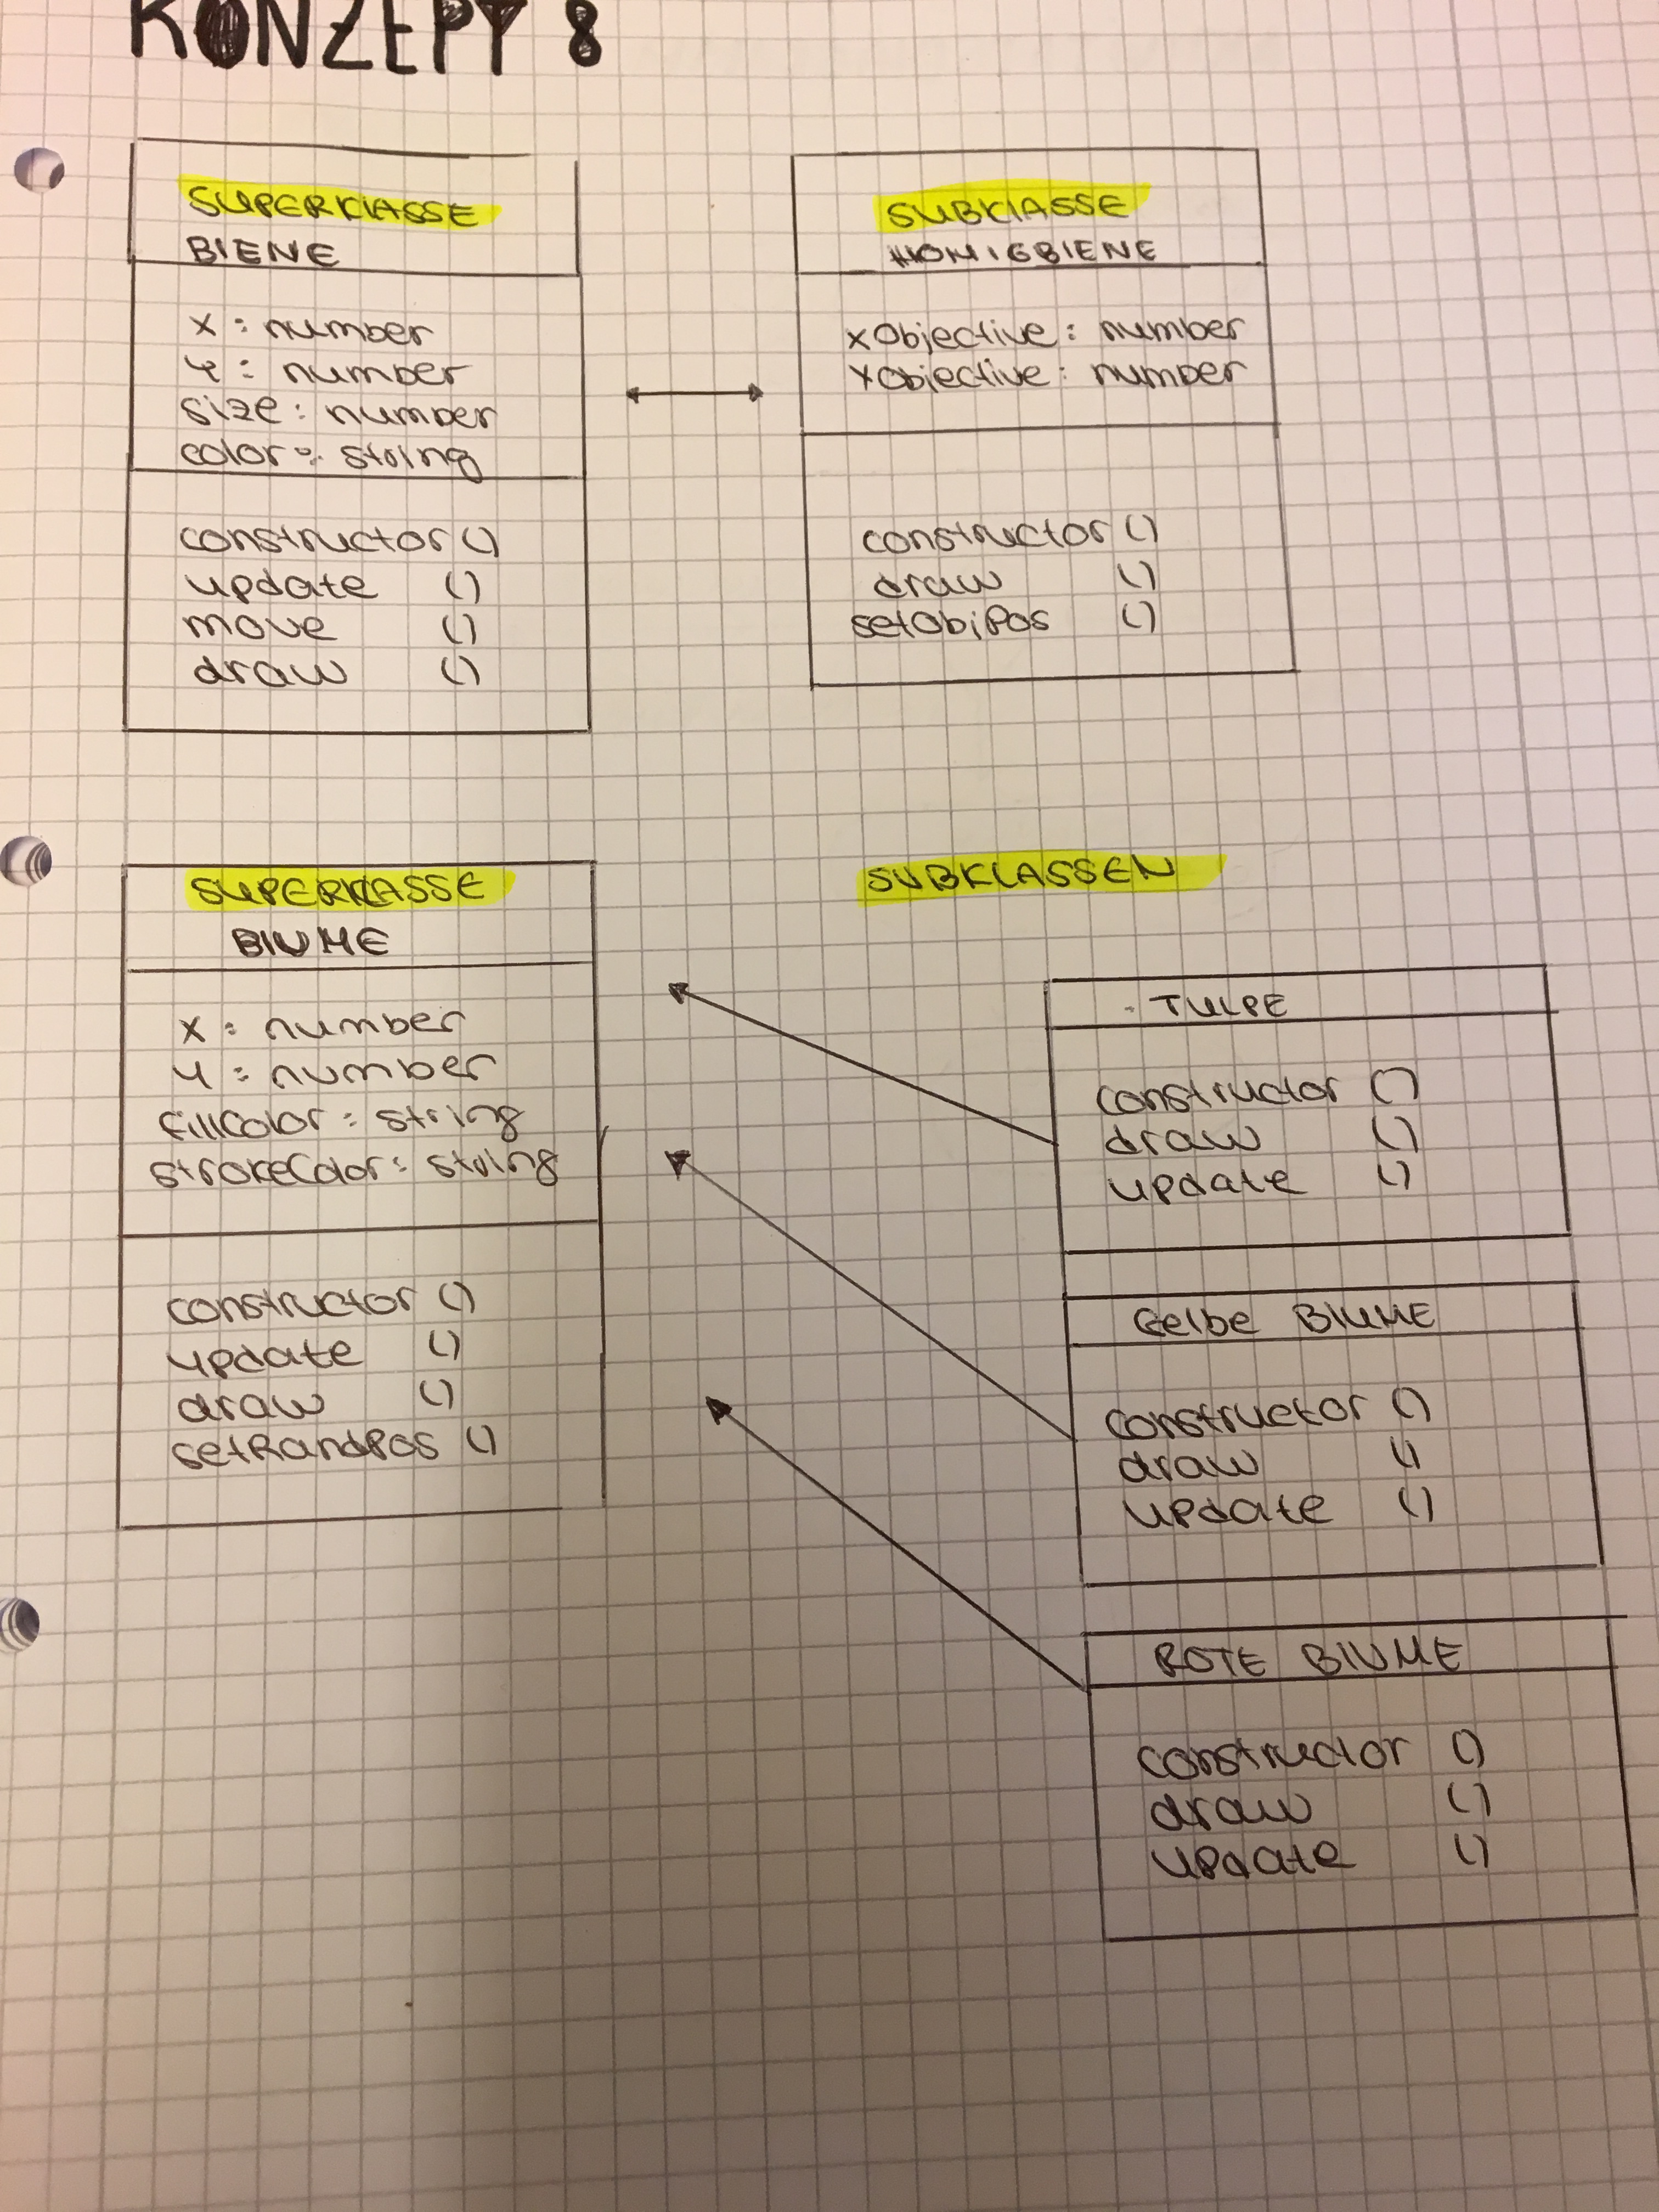 KONZEPT 8
SUPERKLASSE
BIENE
x : number
y : number
size : number
color : string
constructor ()
update ()
move ()
draw ()
SUBKLASSE
HONIGBIENE
xObjective : number
yObjective : number
constructor ()
draw ()
setObjPos ()
SUPERKLASSE
BLUME
x : number
y : number
fillColor : string
strokeColor : string
constructor ()
update ()
draw ()
setRandPos ()
SUBKLASSEN
TULPE
constructor ()
draw ()
update ()
Gelbe BLUME
constructor ()
draw ()
update ()
ROTE BLUME
constructor ()
draw ()
update ()